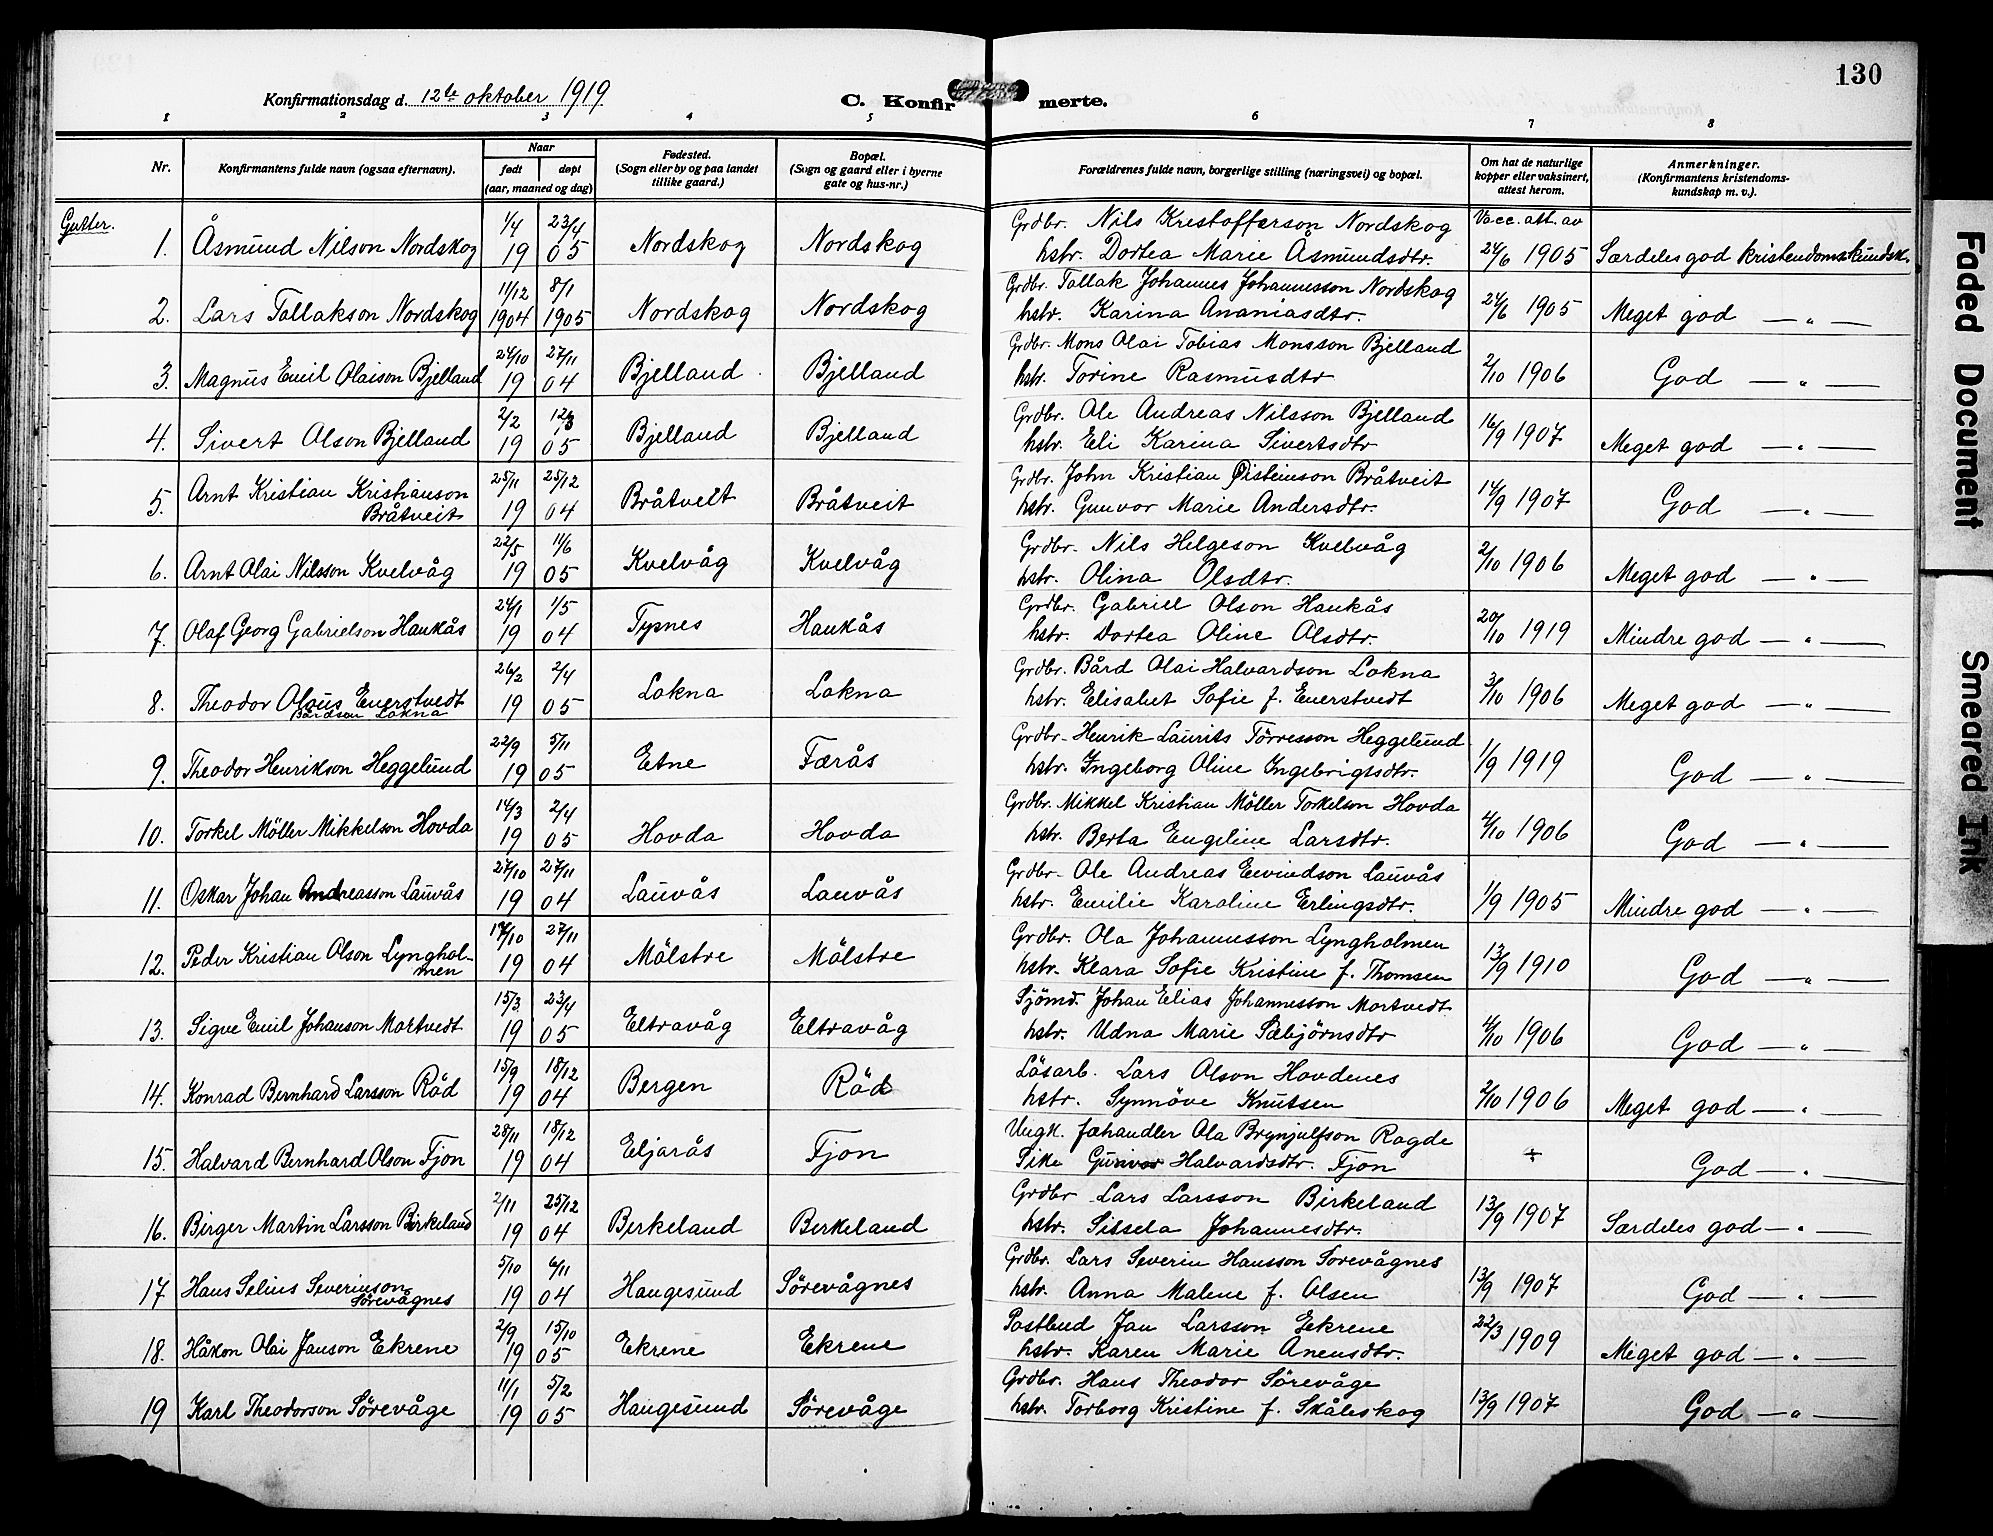 130
Konfirmationsdag d. 12te oktober 1919
C. Konfirmerte.
1 2 3 4 5 6 7 8
Nr. Konfirmantens fulde navn (ogsaa efternavn). Naar født døpt (aar, maaned og dag) Fødested. (Sogn eller by og paa landet tillike gaard.) Bopæl. (Sogn og gaard eller i byerne gate og hus-nr.) Forældrenes fulde navn, borgerlige stilling (næringsvei) og bopæl. Om hat de naturlige kopper eller vaksinert, attest herom. Anmerkninger. (Konfirmantens kristendomskundskap m. v.).
Gutter. 1/4 23/4 Grdbr. Nils Krestofferson Nordskog Vacc. att. av
1. Åsmund Nilson Nordskog 19 05 Nordskog Nordskog hstr. Dortea Marie Åsmundsdtr. 24/6 1905 Særdeles god kristendomskundsk.
11/12 8/1 Grdbr. Tallak Johannes Johannesson Nordskog
2. Lars Tallakson Nordskog 1904 1905 Nordskog Nordskog hstr. Karina Ananiasdtr. 24/6 1905 Meget god — „ —
24/10 27/11 Grdbr. Mons Olai Tobias Monsson Bjelland
3. Magnus Emil Olaison Bjelland 19 04 Bjelland Bjelland hstr. Torine Rasmusdtr 2/10 1906 God — „ —
2/2 12/3 Grdbr. Ole Andreas Nilsson Bjelland
4. Sivert Olson Bjelland 19 05 Bjelland Bjelland hstr. Eli Karina Sivertsdtr 16/9 1907 Meget god — „ —
Arnt Kristian Kristianson 25/11 25/12 Grdbr. John Kristian Øisteinson Bråtveit
5. Bråtveit 19 04 Bråtveit Bråtveit hstr. Gunvor Marie Andersdtr. 14/9 1907 God — „ —
22/5 11/6 Grdbr. Nils Helgeson Kvelvåg
6. Arnt Olai Nilsson Kvelvåg 19 05 Kvelvåg Kvelvåg hstr. Olina Olsdtr. 2/10 1906 Meget god — „ —
24/1 1/5 Grdbr. Gabriel Olson Haukås
7. Olaf Georg Gabrielson Haukås 19 04 Tysnes Haukås hstr. Dortea Oline Olsdtr. 20/10 1919 Mindre god — „ —
26/2 2/4 Grdbr. Bård Olai Halvardson Lokna
8. Theodor Olaus Everstvedt 19 05 Lokna Lokna hstr. Elisabet Sofie f. Everstvedt 3/10 1906 Meget god — „ —
Bårdson Lokna
22/9 5/11 Grdbr. Henrik Laurits Törresson Heggelund
9. Theodor Henrikson Heggelund 19 05 Etne Færås hstr. Ingeborg Oline Ingebrigtsdtr. 1/9 1919 God — „ —
14/3 2/4 Grdbr. Mikkel Kristian Möller Torkelson Hovda
10. Torkel Möller Mikkelson Hovda 19 05 Hovda Hovda hstr. Berta Engeline Larsdtr. 4/10 1906 God — „ —
27/10 27/11 Grdbr. Ole Andreas Eivindson Lauvås
11. Oskar Johan Andreasson Lauvås 19 04 Lauvås Lauvås hstr. Emilie Karoline Erlingsdtr. 1/9 1905 Mindre god — „ —
17/10 27/11 Grdbr. Ola Johannesson Lyngholmen
12. Peder Kristian Olson Lynghol- 19 04 Mölstre Mölstre hstr. Klara Sofie Kristine f. Thomsen 13/9 1910 God — „ —
men
15/3 23/4 Sjömd. Johan Elias Johannesson Mortvedt
13. Sigve Emil Johanson Mortvedt 19 05 Eltravåg Eltravåg hstr. Udna Marie Sæbjörnsdtr 4/10 1906 God — „ —
15/9 18/12 Lösarb. Lars Olson Hovdenes
14. Konrad Bernhard Larsson Röd 19 04 Bergen Röd hstr. Synnöve Knutsen 2/10 1906 Meget god — „ —
28/11 18/12 Ungk. fæhandler Ola Brynjulfson Ragde
15. Halvard Bernhard Olson Tjon 19 04 Eljarås Tjon Pike Gunvor Halvardsdtr. Tjon ÷ God — „
2/11 25/12 Grdbr Lars Larsson Birkeland
16. Birger Martin Larsson Birkeland 19 04 Birkeland Birkeland hstr. Sissela Johannesdtr. 13/9 1907 Særdeles god — „ —
5/10 6/11 Grdbr. Lars Severin Hansson Sorevågnes
17 Hans Selius Severinson 19 04 Haugesund Sörevågnes hstr. Anna Malene f. Olsen 13/9 1907 God — „ —
Sörevågnes
2/9 15/10 Postbud Jan Larsson Eekrene
18. Håkon Olai Janson Ekrene 19 05 Ekrene Ekrene hstr. Karen Marie Anensdtr. 22/3 1909 Meget god — „ —
11/1 5/2 Grdbr. Hans Theodor Sörevåge
19 Karl Theodorson Sörevåge 19 05 Haugesund Sörevåge hstr. Torborg Kristine f. Skåleskog 13/9 1907 God — „ —
Faded Document
Smeared Ink